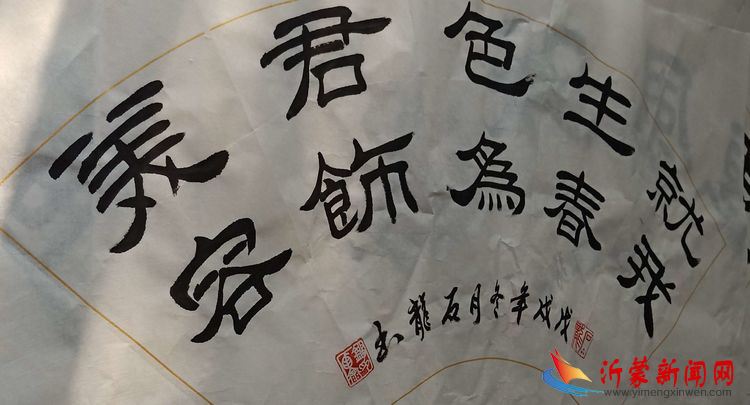 就
生春
色為
君飾
美容
戊戌年冬月石龍书
沂蒙新闻网
www.yimengxinwen.com